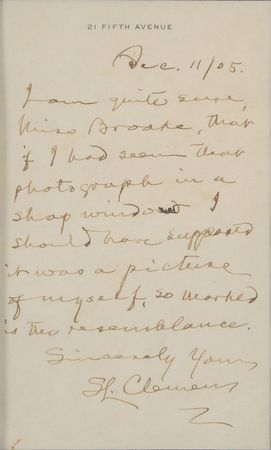 21 FIFTH AVENUE
Dec. 11/05.
I am quite sure,
Miss Brooke, that
if I had seen that
photograph in a
shop window I
should have supposed
it was a picture
of myself, so marked
is the resemblance.
Sincerely Yours
SL. Clemens